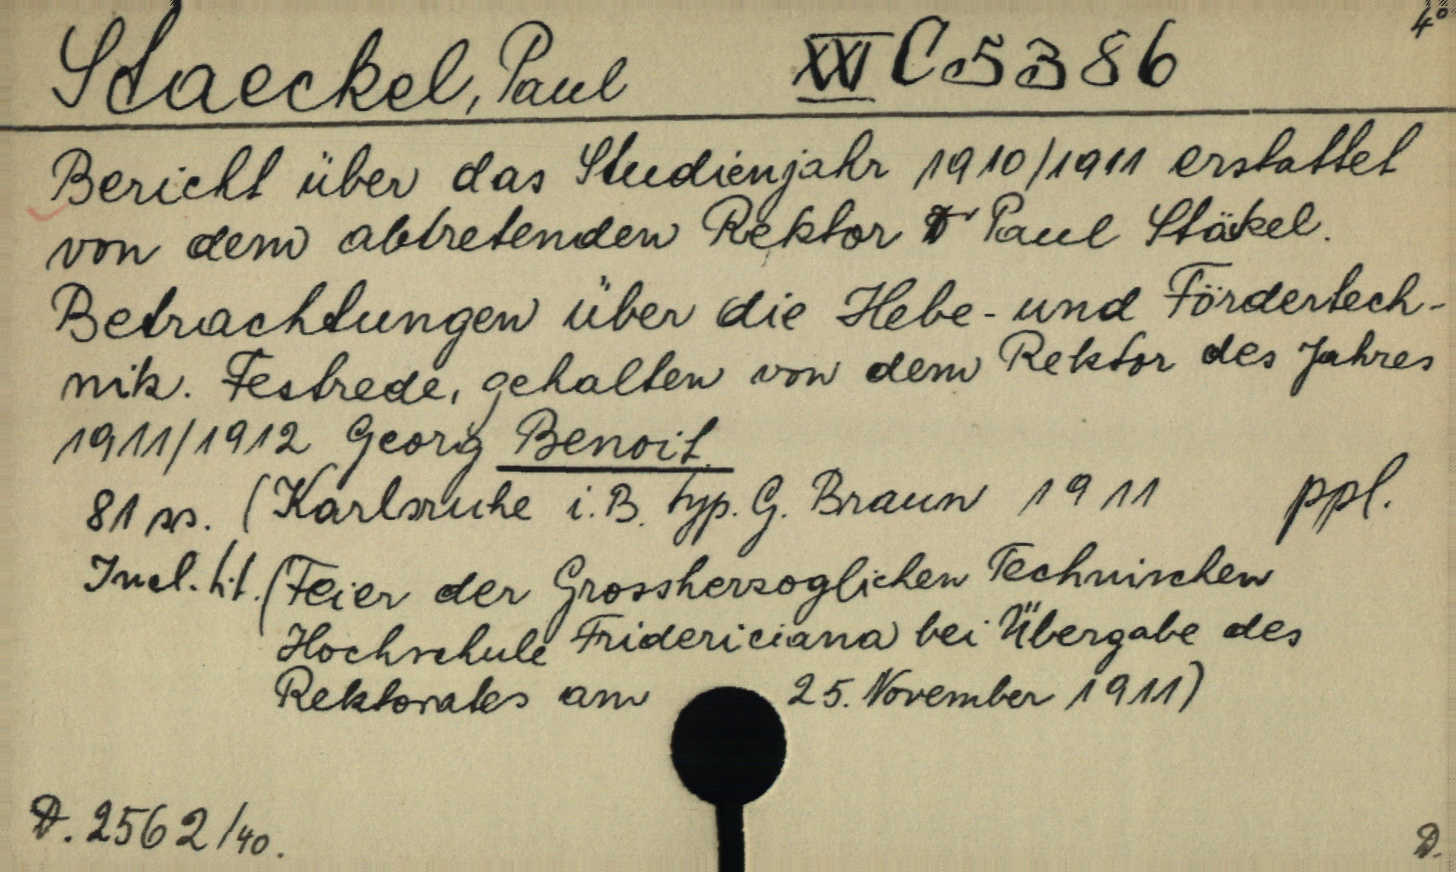 Staeckel, Paul XXI C 5386 4°
Bericht über das Studienjahr 1910/1911 erstattet
von dem abtretenden Rektor Dr Paul Stäkel.
Betrachtungen über die Hebe- und Fördertech-
nik. Festrede, gehalten von dem Rektor des Jahres
1911/1912 Georg Benoit.
81 ss. (Karlsruhe i. B. typ. G. Braun 1911 ppl.
Incl. tit. (Feier der Grossherzoglichen Technischen
Hochschule Fridericiana bei Übergabe des
Rektorates am 25. November 1911)
D. 2562/40. D.